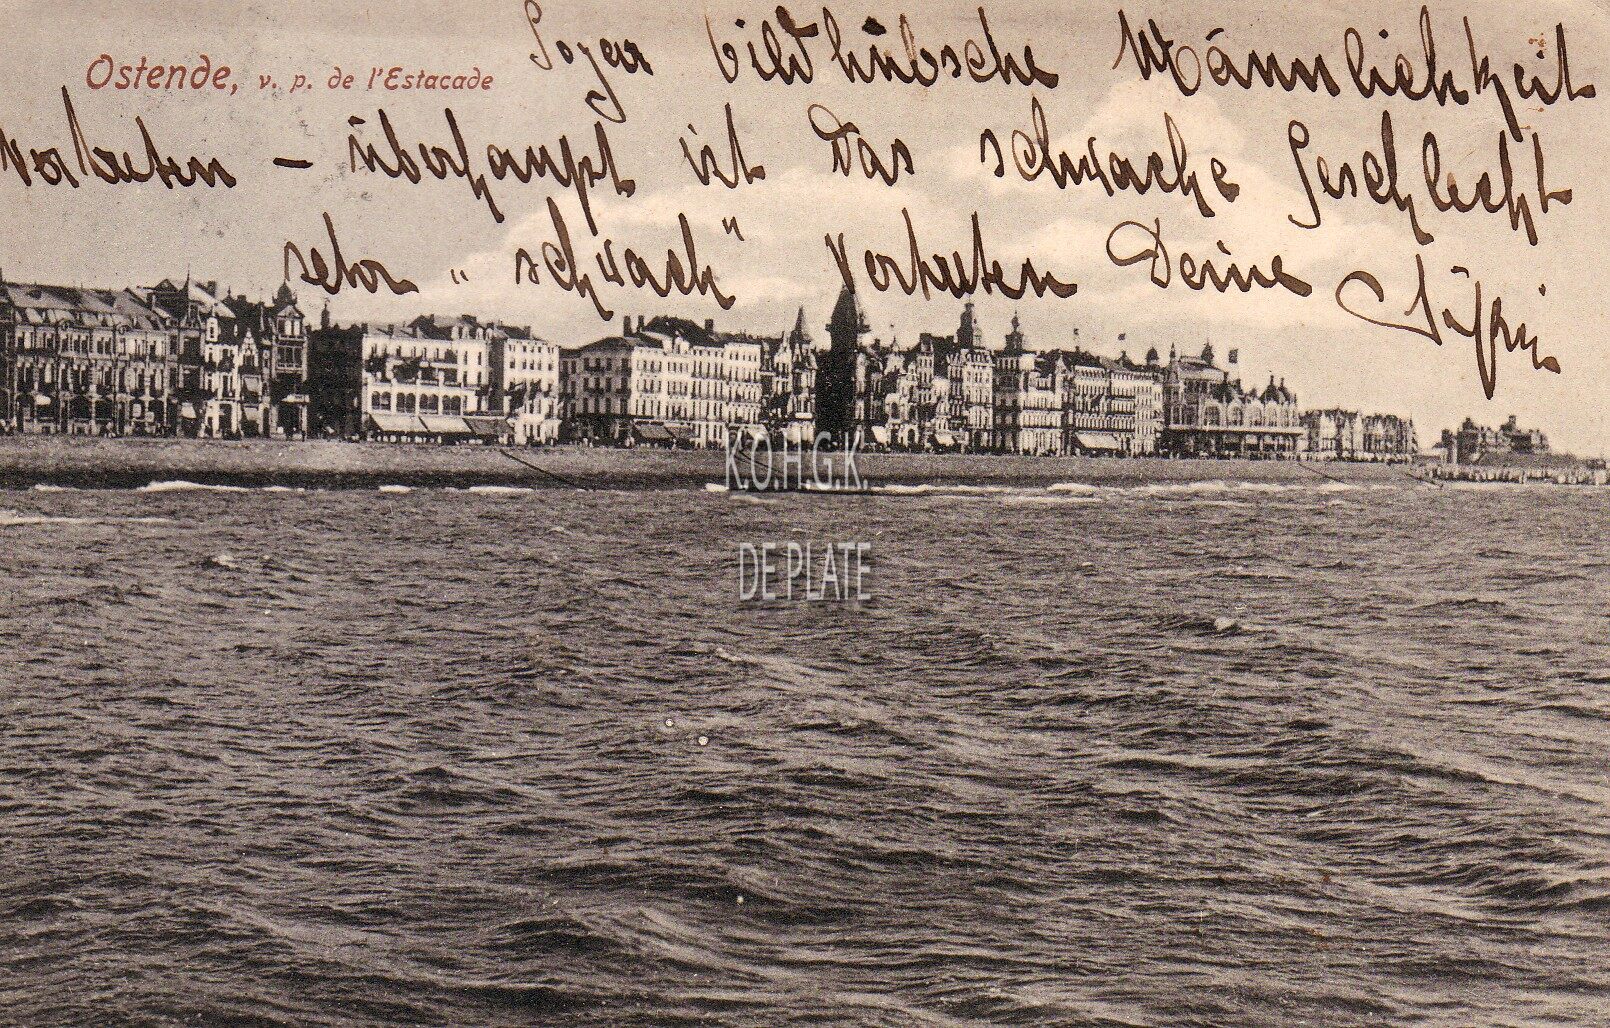 Ostende, v. p. de l'Estacade
Sogar bildhübsche Männlichkeit
vertreten – überhaupt ist das schwache Geschlecht
sehr „ schwach" vertreten Deine
K.O.H.G.K.
DE PLATE